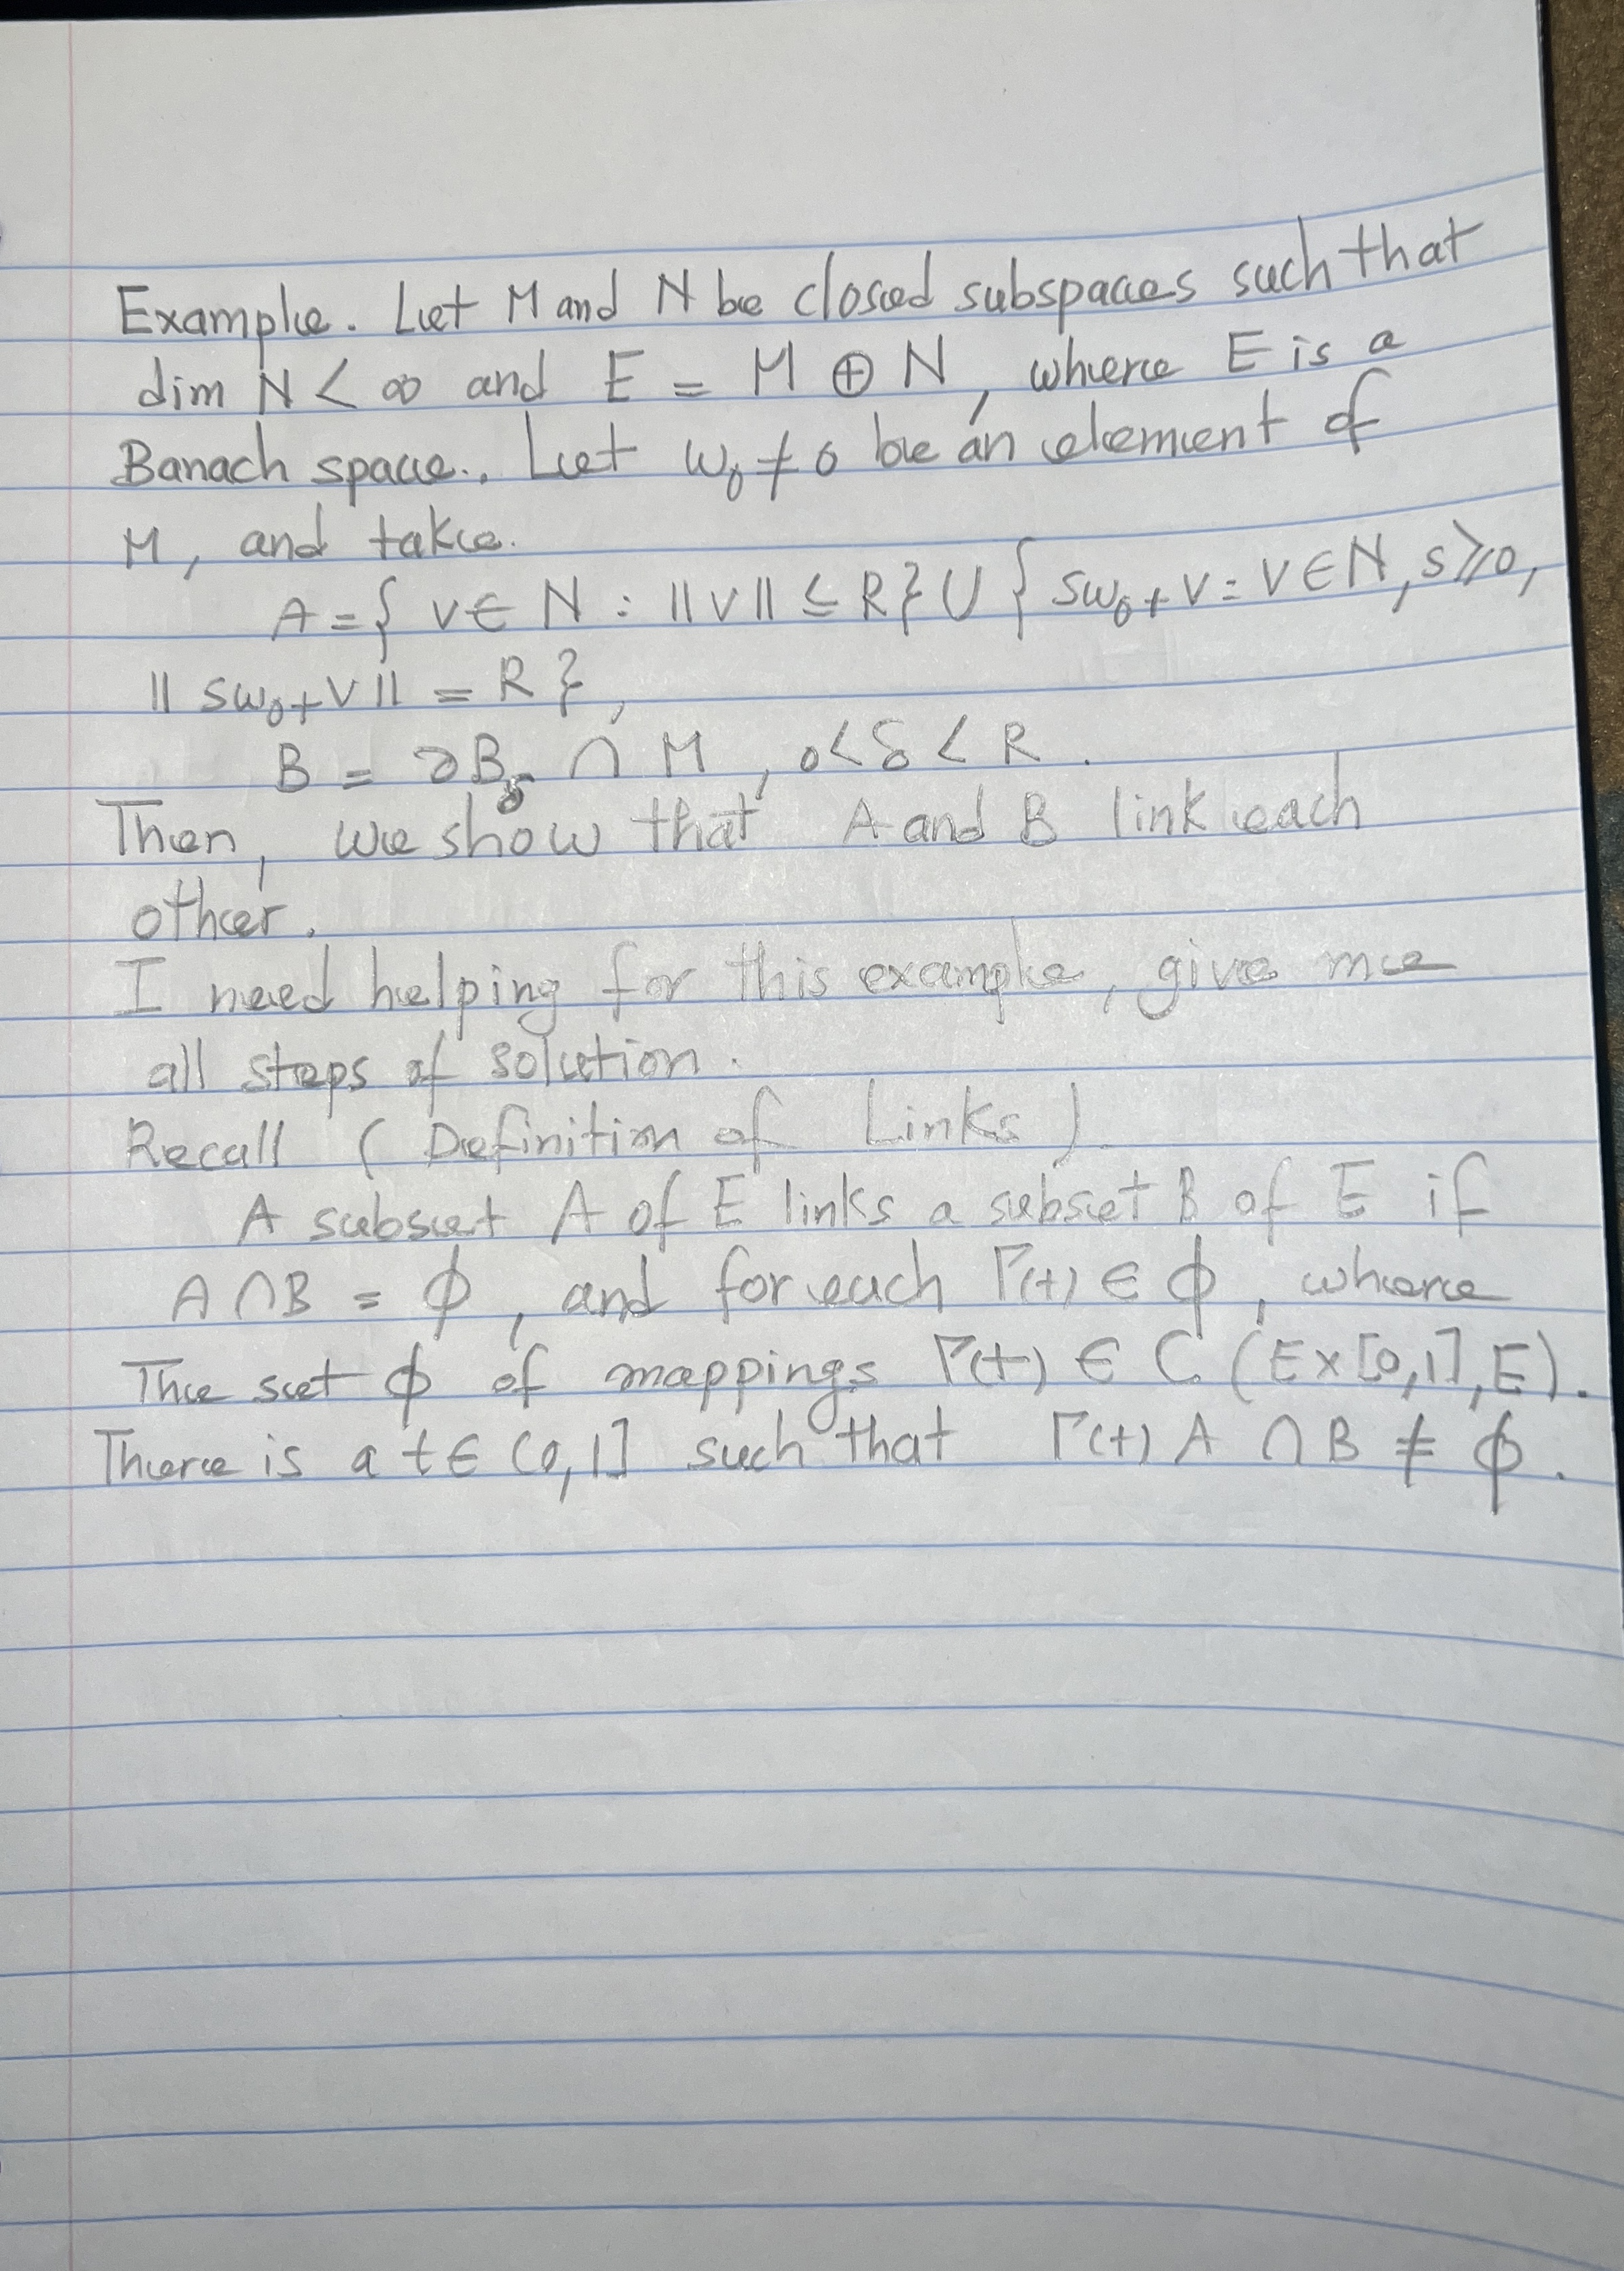 Example. Let M and N be closed subspaces such that
dim N < ∞ and E = M ⊕ N, where E is a
Banach space.. Let w₀ ≠ 0 be an element of
M, and take.
A = { v ∈ N : ||v|| ≤ R} ∪ { sw₀+v : v ∈ N, s ≥ 0,
|| sw₀+v || = R },
B = ∂B_δ ∩ M, 0<δ<R.
Then, we show that A and B link each
other.
I need helping for this example, give me
all steps of solution.
Recall ( Definition of Links ).
A subset A of E links a subset B of E if
A ∩ B = ϕ, and for each Γ(t) ∈ ϕ, where
The set ϕ of mappings Γ(t) ∈ C (E×[0,1], E).
There is a t ∈ (0,1] such that Γ(t) A ∩ B ≠ ϕ.